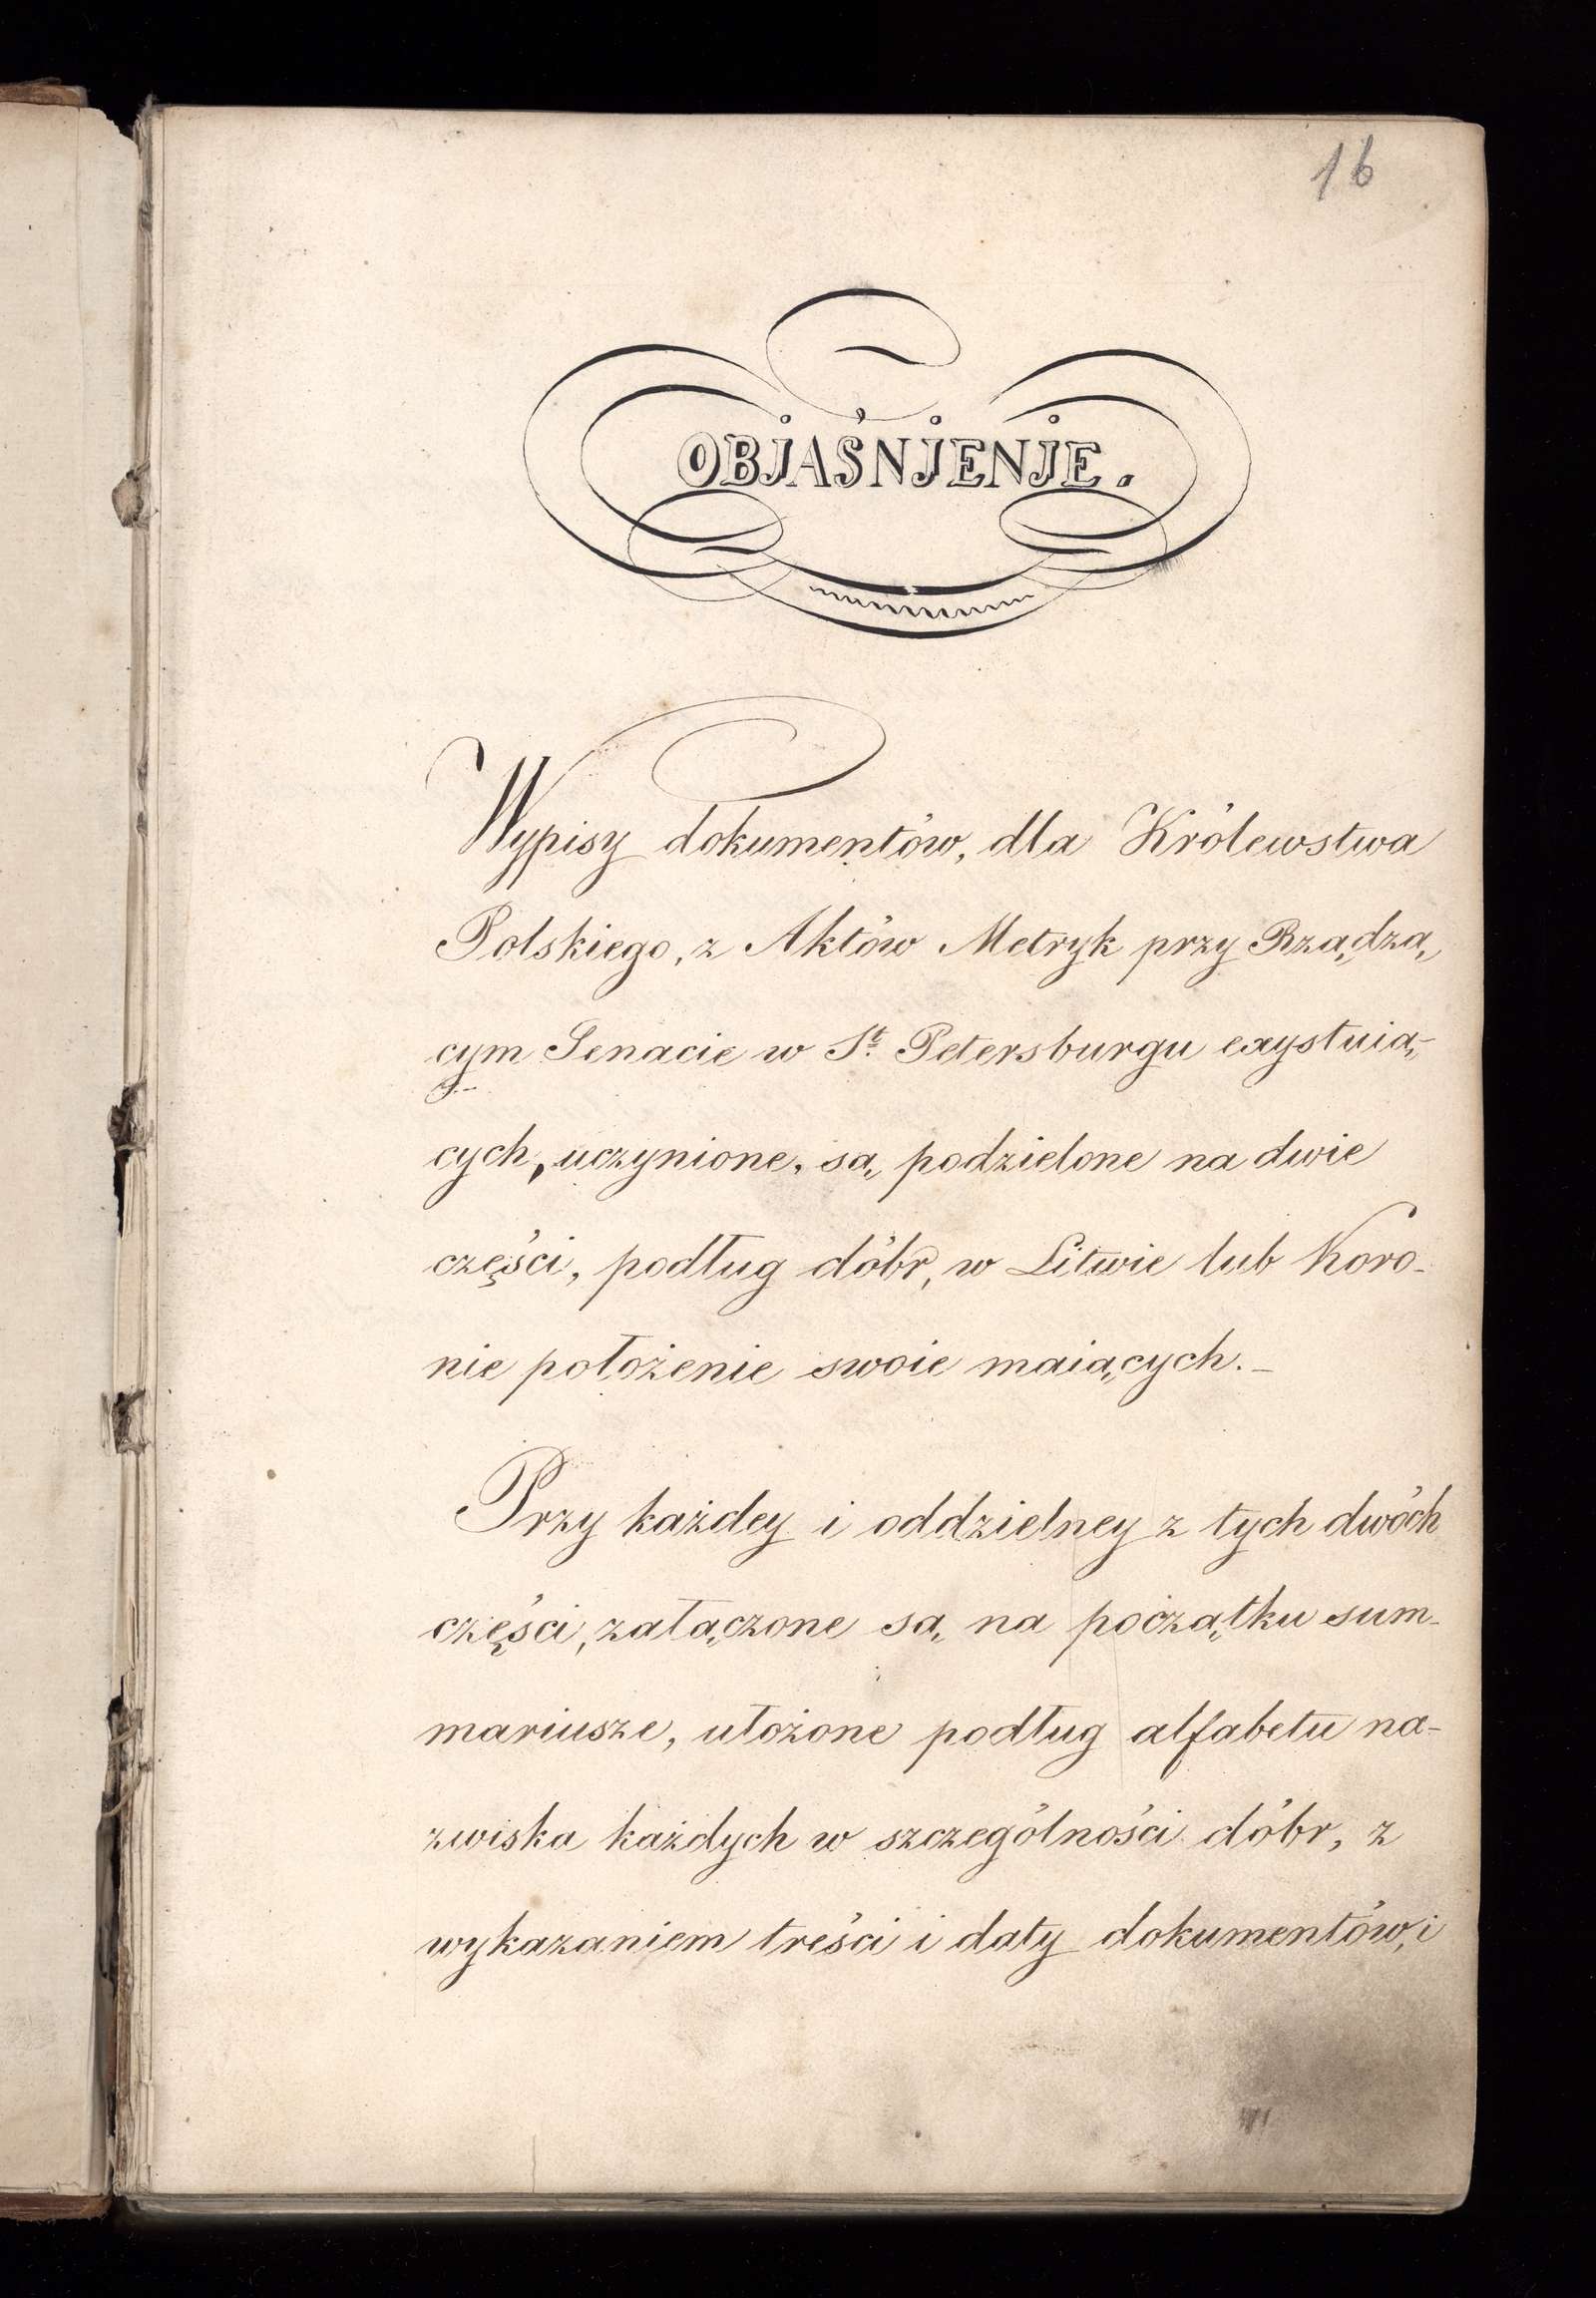 16
OBJAŚNJENJE.
Wypisy dokumentów, dla Królewstwa
Polskiego, z Aktów Metryk przy Rządzą„
cym Senacie w St. Petersburgu exystuią-
cych, uczynione, są, podzielone na dwie
części, podług dóbr, w Litwie lub Koro-
nie położenie swoie maiących.-
Przy każdey i oddzielney z tych dwóch
części, załączone są, na początku sum-
mariusze, ułożone podług alfabetu na-
zwiska każdych w szczególności dóbr, z
wykazaniem treści i daty dokumentów, i